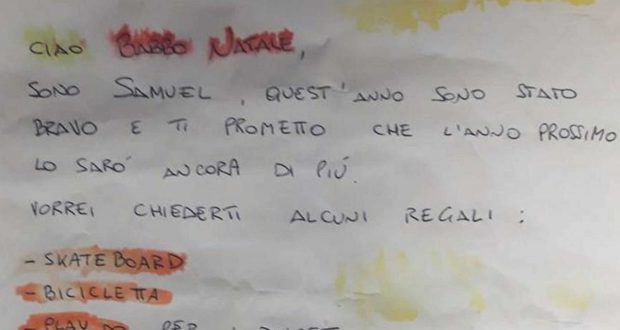 CIAO BABBO NATALE,
SONO SAMUEL, QUEST'ANNO SONO STATO
BRAVO E TI PROMETTO CHE L'ANNO PROSSIMO
LO SARO' ANCORA DI PIÚ.
VORREI CHIEDERTI ALCUNI REGALI:
- SKATEBOARD
- BICICLETTA
- PLAY PER